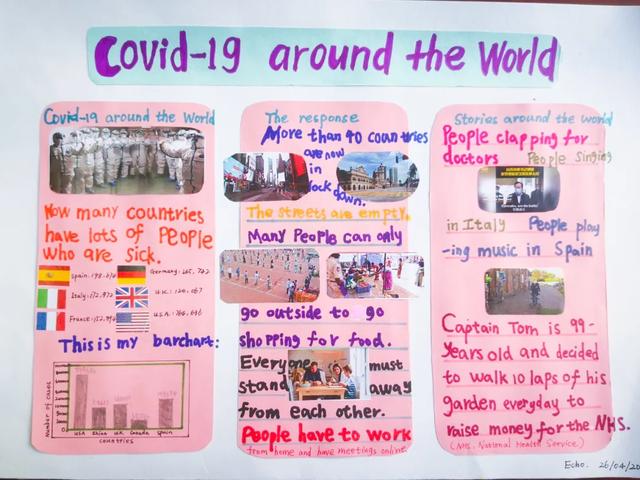 Covid-19 around the World
Covid-19 around the World
How many countries
have lots of People
who are sick.
Spain:
Germany:
Italy:
U.K.:
France:
U.S.A:
This is my barchart:
Number of cases
USA China UK Canada Spain
countries
The response
More than 40 countries
are now
in
lock down.
The streets are empty.
Many People can only
go outside to go
shopping for food.
Everyone must
stand away
from each other.
People have to work
from home and have meetings online.
Stories around the world
People clapping for
doctors People singing
in Italy People play
-ing music in Spain
Captain Tom is 99-
years old and decided
to walk 10 laps of his
garden everyday to
raise money for the NHS.
(NHS. National Health Service.)
Echo. 26/04/20